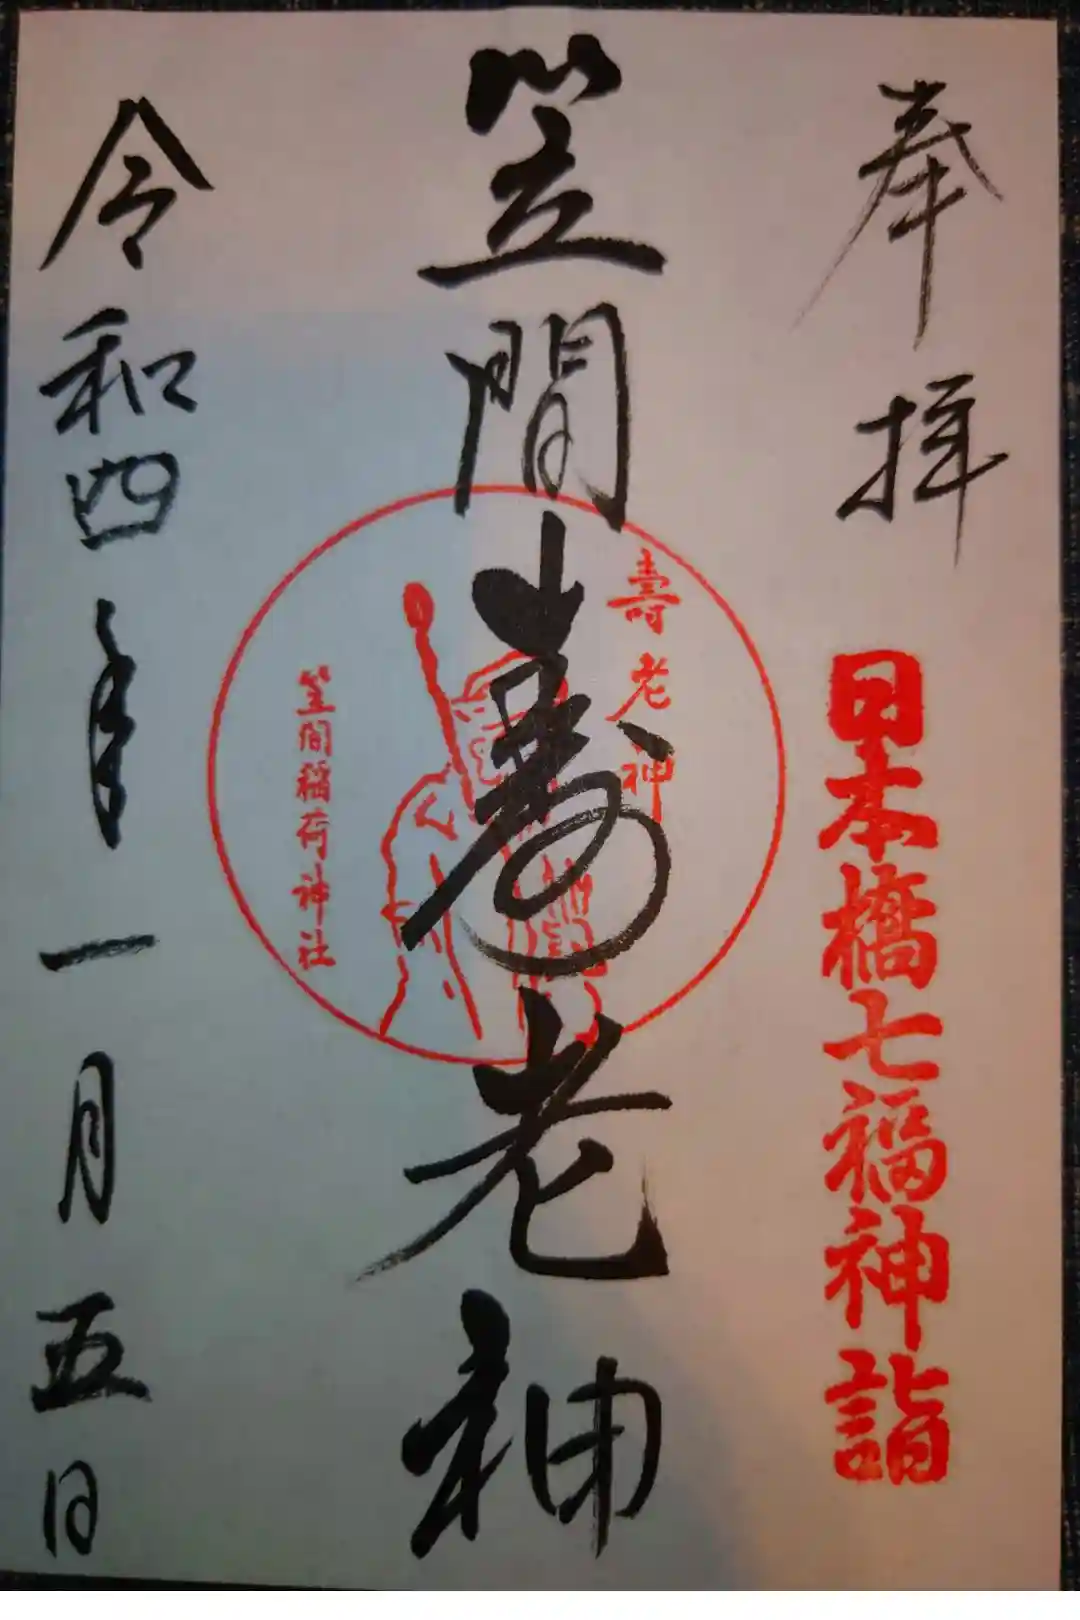 奉拝
日本橋七福神詣
笠間寿老神
壽老神
笠間稲荷神社
令和四年一月五日